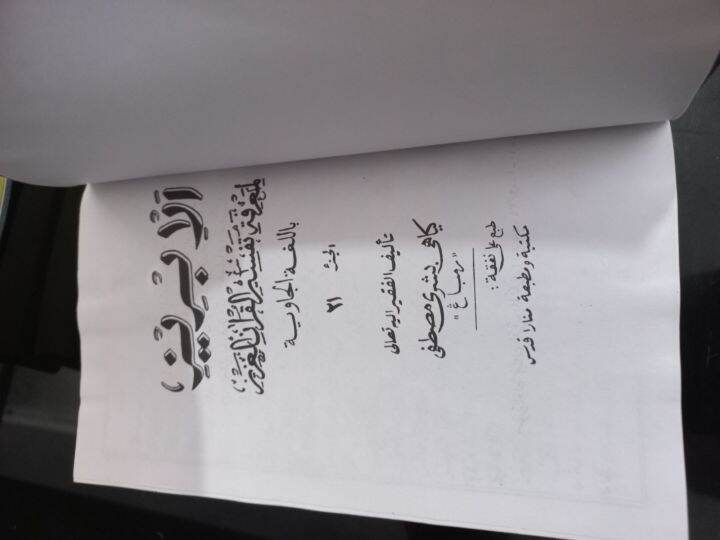 الإبريز
لمعرفة تفسير القرآن العزيز
باللغة الجاوية
الجزء
٢١
تأليف الفقير اليه تعالى
كياهى بشرى مصطفى
"رمباڠ"
طبع على نفقة :
مكتبة ومطبعة منارا قدس